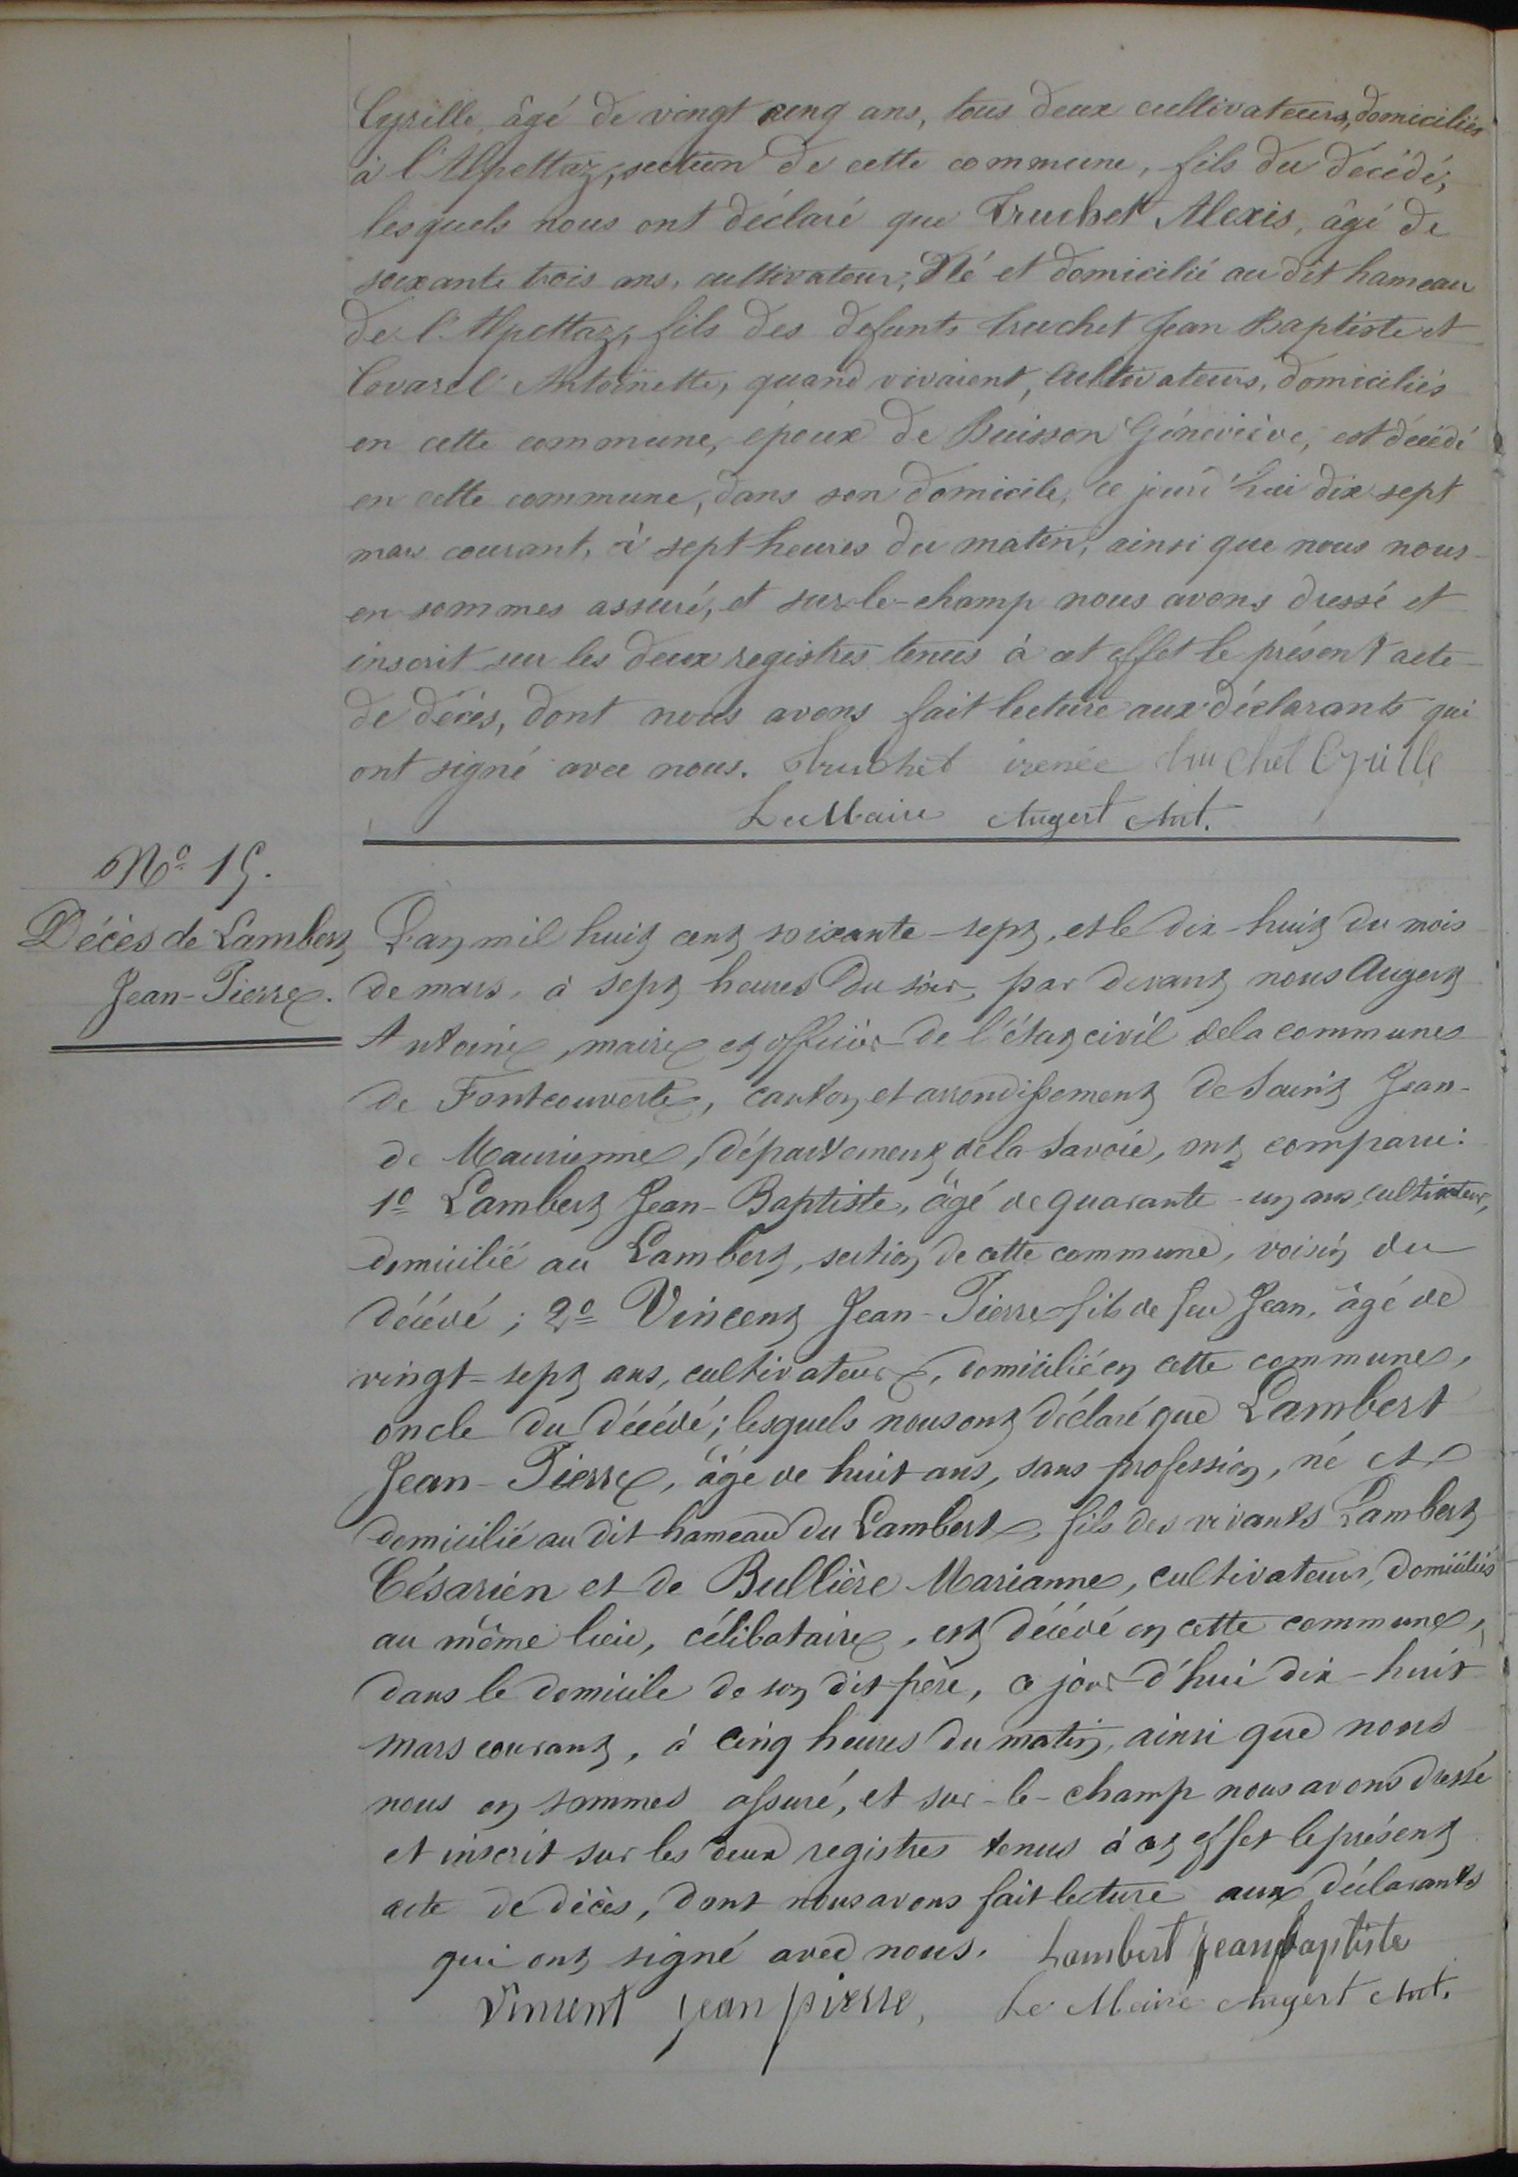 Cyrille, âgé de vingt cinq ans, tous deux cultivateurs, domiciliés
à l'Alpettaz, section de cette commune, fils du décédé;
lesquels nous ont déclaré que Truchet Alexis, âgé de
soixante trois ans, cultivateur, Né et domicilié au dit hameau
de l'Alpettaz, fils des defunts truchet Jean Baptiste et
Covarel Antoinette, quand vivaient, Cultivateurs, domiciliés
en cette commune, époux de Buisson Géneviève, est décédé
en cette commune, dans son domicile, ce jourd'hui dix sept
mars courant, à sept heures du matin, ainsi que nous nous
en sommes assuré, et sur-le-champ nous avons dressé et
inscrit sur les deux registres tenus à cet effet le présent acte
de décès, dont nous avons fait lecture aux déclarants qui
ont signé avec nous. Truchet irenée truchet Cyrille
Le Maire Augert Ant.
Nº 15.
Décès de Lambert
Jean-Pierre.
L'an mil huit cent soixante-sept, et le dix-huit du mois
de mars, à sept heures du soir, par devant nous Augert
Antoine, maire et officier de l'état civil de la commune
de Fontcouverte, canton et arrondissement de Saint Jean-
de Maurienne, département de la Savoie, ont comparu:
1º Lambert Jean-Baptiste, âgé de quarante-un ans, cultivateur,
domicilié au Lambert, section de cette commune, voisin du
décédé; 2º Vincent Jean-Pierre fils de feu Jean, âgé de
vingt-sept ans, cultivateur, domicilié en cette commune,
oncle du décédé; lesquels nous ont déclaré que Lambert
Jean-Pierre, âgé de huit ans, sans profession, né et
domicilié au dit hameau du Lambert, fils des vivants Lambert
Césarien et de Bullière Marianne, cultivateurs, domiciliés
au même lieu, célibataire, est décédé en cette commune,
dans le domicile de son dit père, ce jour d'hui dix-huit
mars courant, à cinq heures du matin, ainsi que nous
nous en sommes assuré, et sur-le-champ nous avons dressé
et inscrit sur les deux registres tenus à cet effet le présent
acte de décès, dont nous avons fait lecture aux déclarants
qui ont signé avec nous. Lambert jean baptiste
Vincent jean pierre, Le Maire Augert Ant.